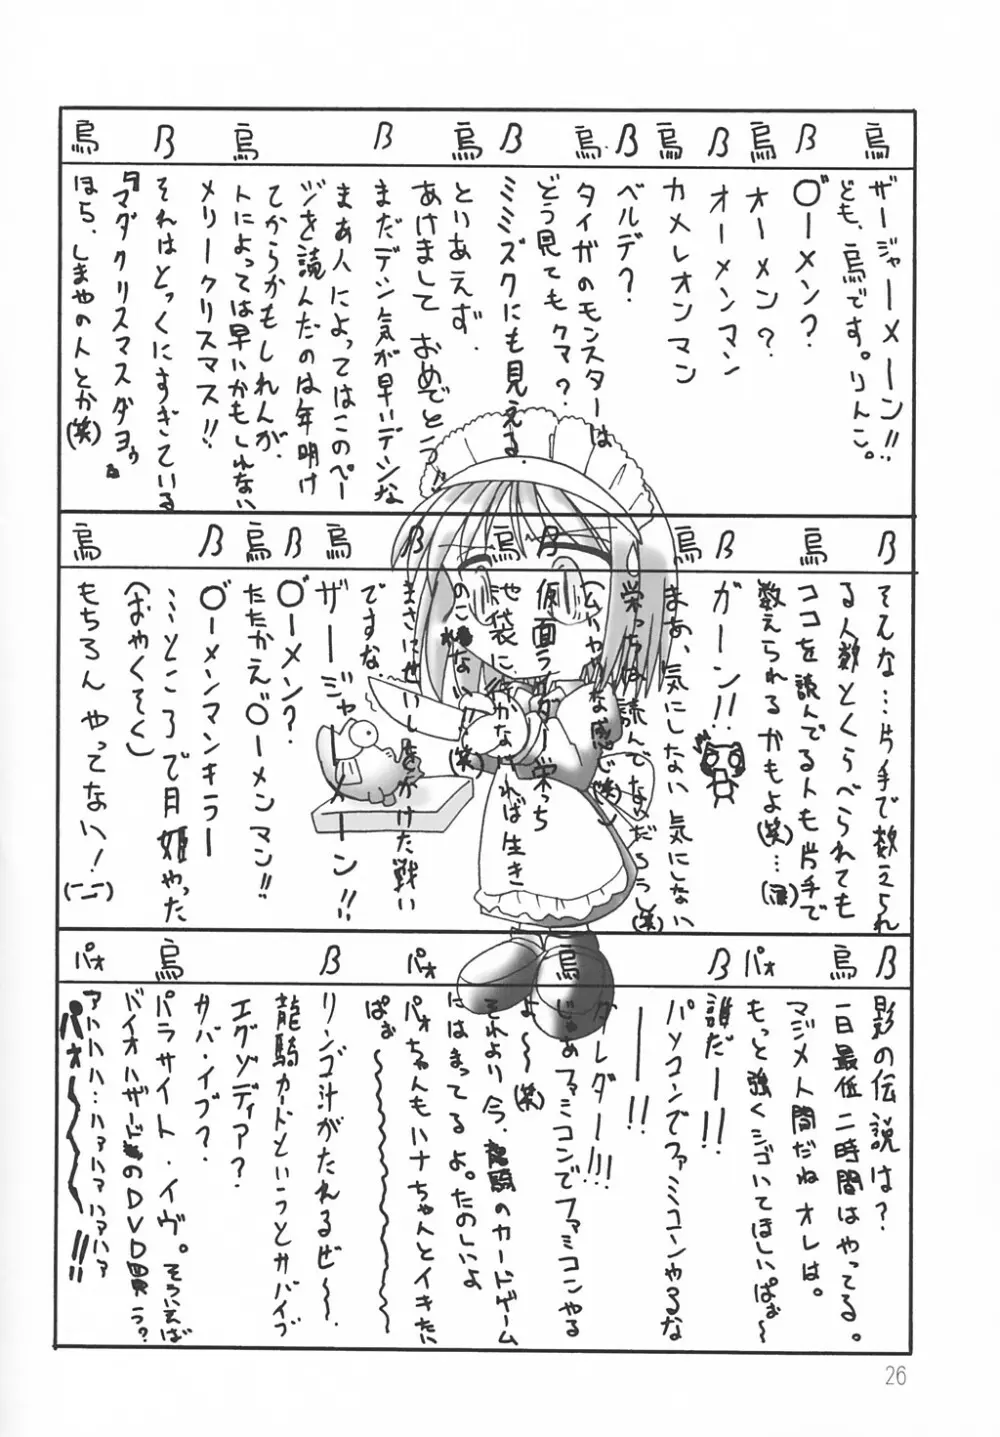 烏
ザージャーメーン!!
ども、烏です。りんこ。
B
○゛ーメン?
烏
オーメン?
B
オーメンマン
烏
カメレオンマン
B
ベルデ?
烏
タイガのモンスターは
どう見てもクマ?
B
ミミズクにも見える
烏
といあえず、
あけまして おめでとう!!
B
まだデン気が早いデンな
烏
まあ人によってはこのペー
ジを読んだのは年明け
てからかもしれんが、
トによっては早いかもしれない
メリークリスマス!!
B
それはとっくにすぎている
『マダクリスマスダヨゥ』
烏
ほら、しまやの人とか(笑)
B
そんな…片手で数えられ
る人数とくらべられても
烏
ココを読んでるトも片手で
数えられるかもよ(笑)…(涙)
B
ガーン!!
烏
まあ、気にしない気にしない
栄っちは読んでないだろうし(笑)
B
仮面ライダー栄っち
烏
池袋に行かなければ生き
のこれない!!(笑)
B
まさに せいしをかけた戦い
ですな。
烏
ザージャーメーン!!
B
○゛ーメン?
烏
たたかえ○゛ーメンマン!!
B
○゛ーメンマンキラー
…ところで月姫やった
(おやくそく)
烏
もちろん やってない!(ーー)
B
影の伝説は?
烏
一日最低二時間はやってる。
マジメ人間だねオレは。
パォ
もっと強くシゴいてほしいぱぉ〜
B
誰だーー!!
パソコンでファミコンやるな
ーーー!!
ダレダー!!!
烏
じゃあファミコンでファミコンやる
よ〜〜(笑)
それより今、龍騎のカードゲーム
にはまってるよ。たのしいよ
パォ
パォちゃんもハナちゃんとイキたい
ぱぉ〜〜〜
B
リンゴ汁がたれるぜ〜〜
龍騎カードというとサバイブ
エグゾディア?
サバ・イブ?
烏
パラサイト・イヴ。そういえば
バイオハザードのDVD買う?
パォ
アハハハハ…ハァハァハァハァハァ
パォ〜〜〜!!
26